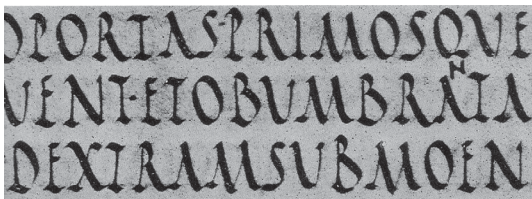 OPORTAS·PRIMOSQUE
UENT·ETOBUMBRANTA
DEXTRAMSUBMOEN